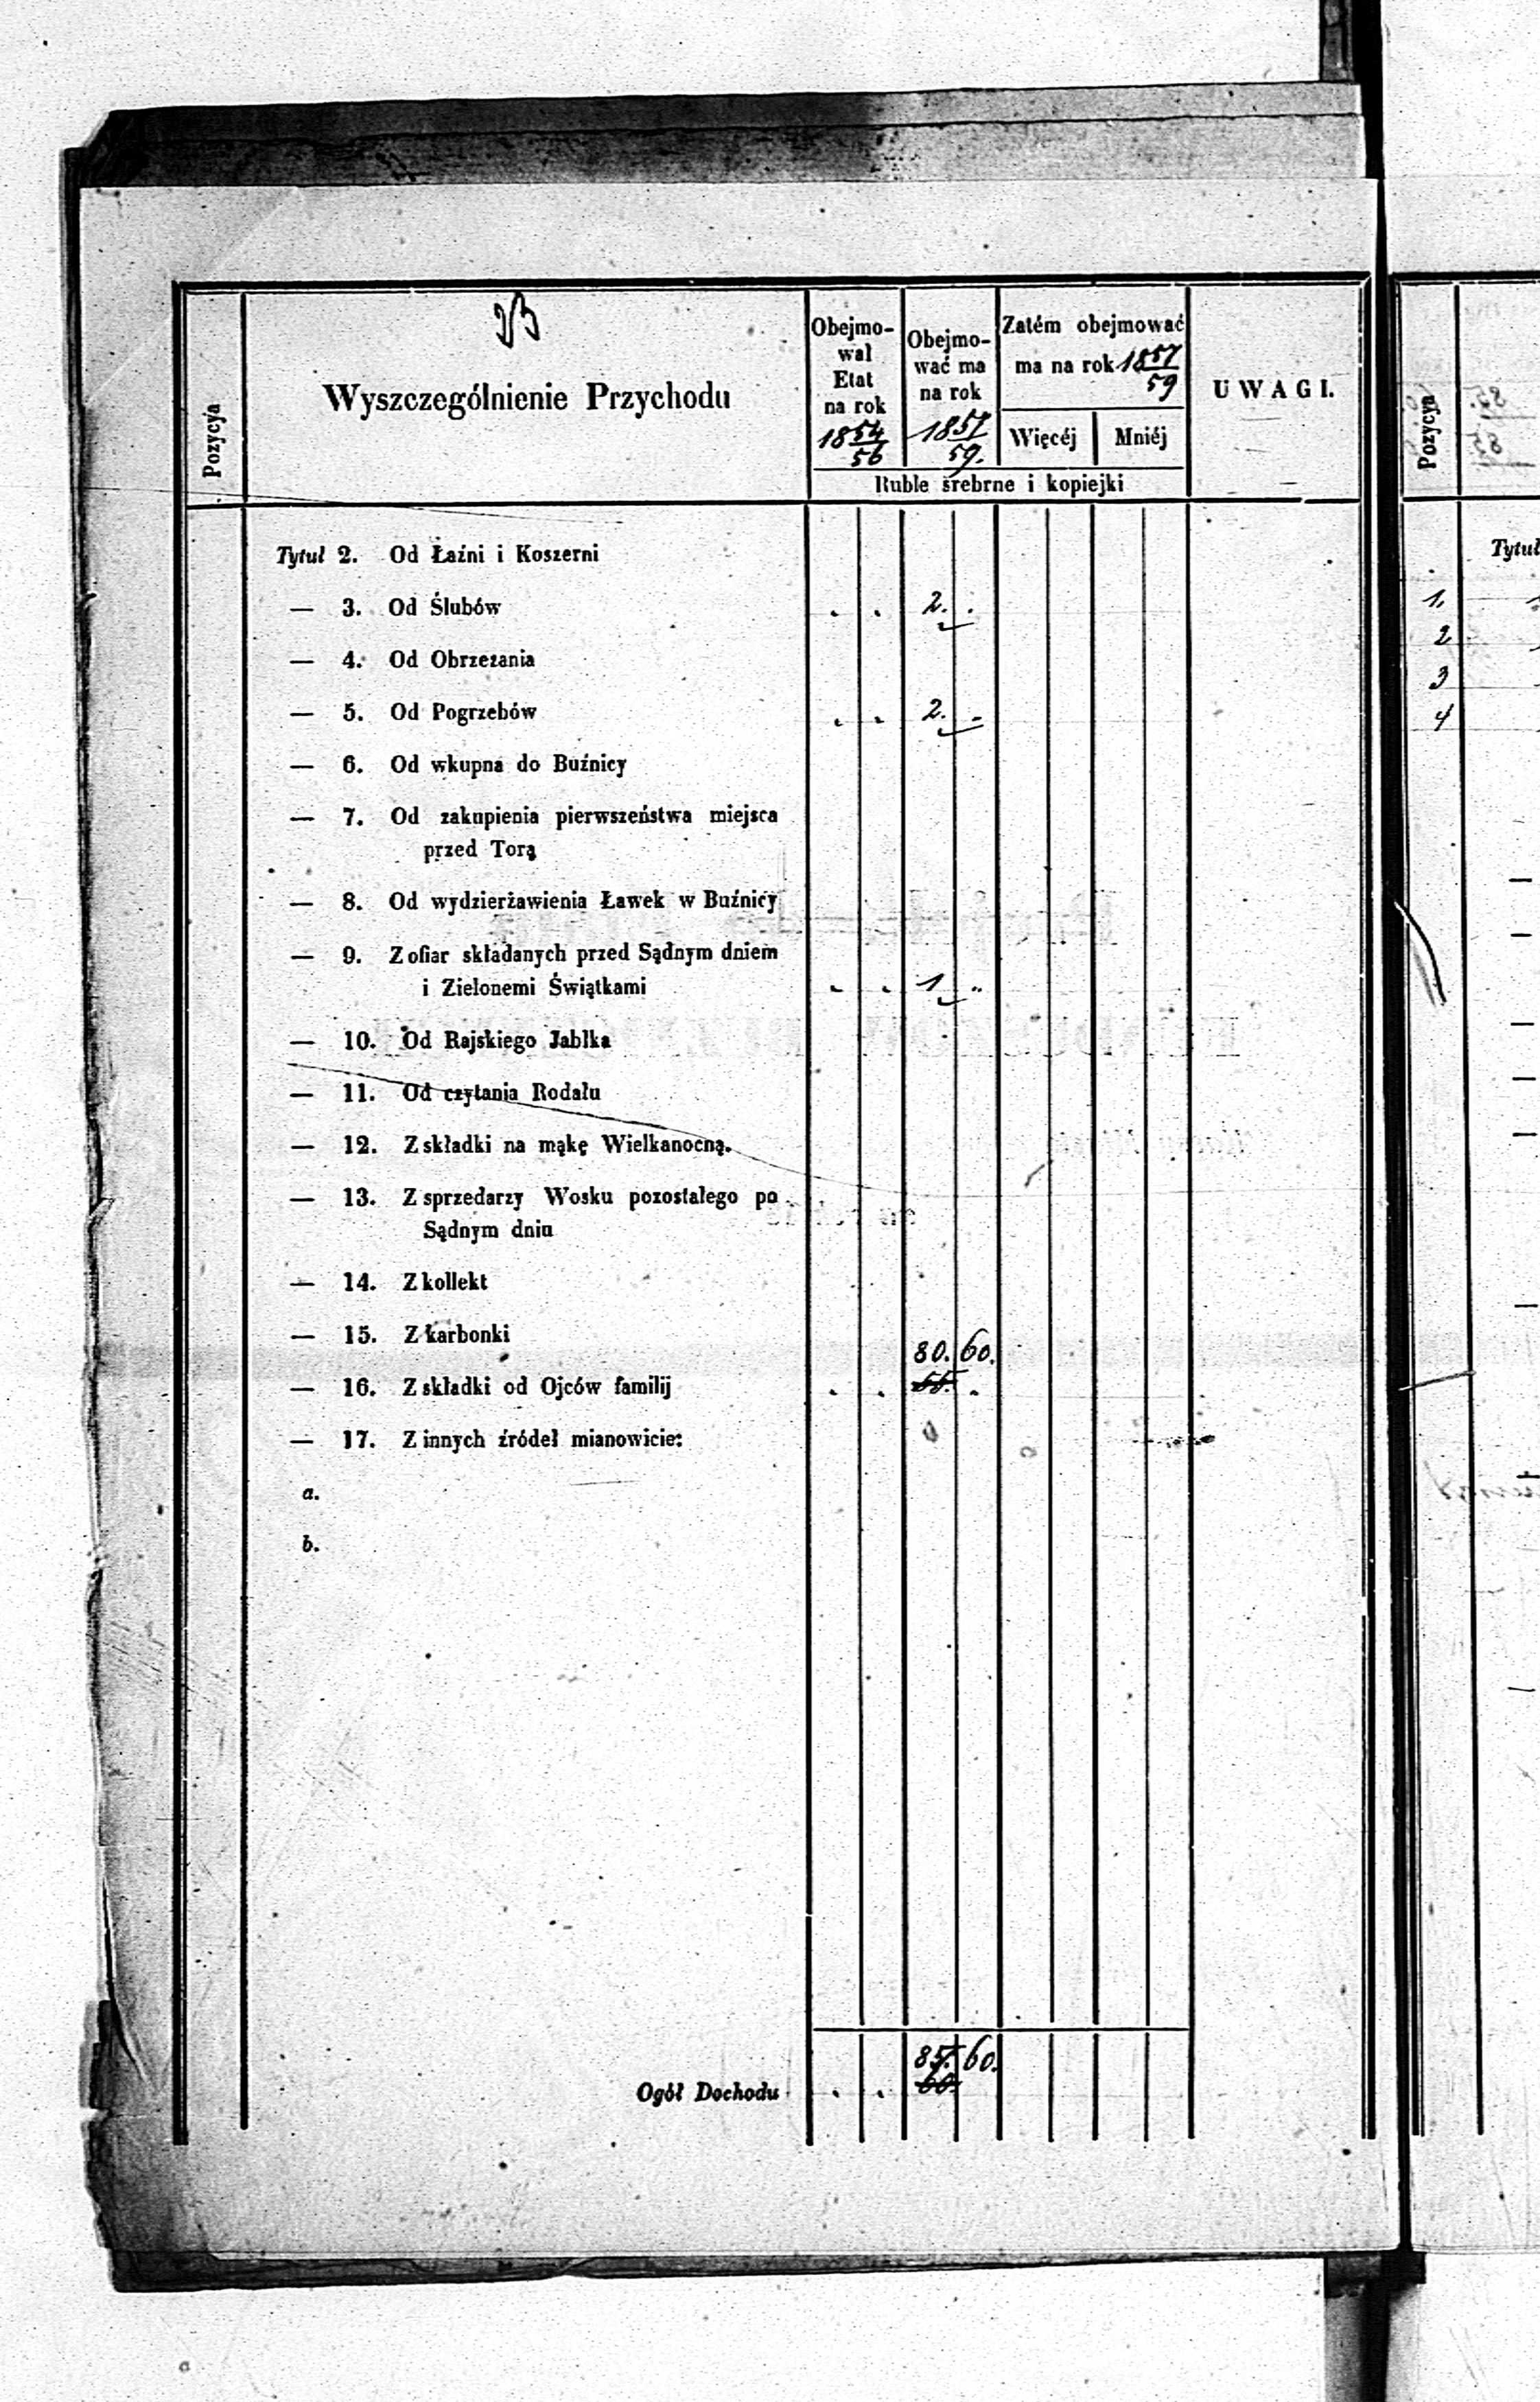 Pozycya
Wyszczególnienie Przychodu
Obejmo-
wał
Etat
na rok
1854/56
Obejmo-
wać ma
na rok
1857/59.
Zatém obejmować
ma na rok 1857/59
Więcéj
Mniéj
Ruble srebrne i kopiejki
UWAGI.
Tytuł 2. Od Łaźni i Koszerni
— 3. Od Ślubów . . 2. .
— 4. Od Obrzezania
— 5. Od Pogrzebów . . 2. .
— 6. Od wkupna do Buźnicy
— 7. Od zakupienia pierwszeństwa miejsca
przed Torą
— 8. Od wydzierżawienia Ławek w Buźnicy
— 9. Z ofiar składanych przed Sądnym dniem
i Zielonemi Świątkami . . 1 "
— 10. Od Rajskiego Jabłka
— 11. Od czytania Rodału
— 12. Z składki na mąkę Wielkanocną.
— 13. Z sprzedarzy Wosku pozostałego po
Sądnym dniu
— 14. Z kollekt
— 15. Z karbonki
80. 60.
— 16. Z składki od Ojców familij . . 55. .
— 17. Z innych źródeł mianowicie:
a.
b.
85. 60.
Ogół Dochodu . . 60.
Pozycya
Tytuł
1.
2
3
4